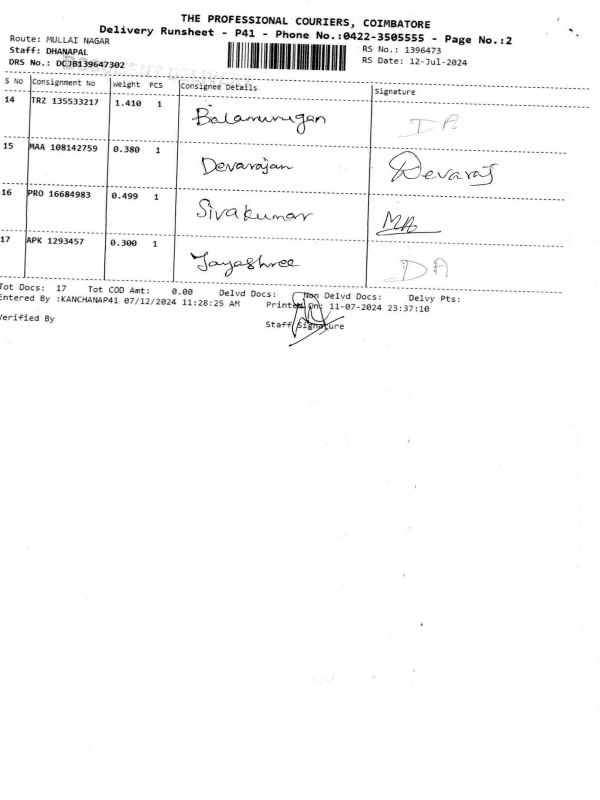 THE PROFESSIONAL COURIERS, COIMBATORE
Delivery Runsheet - P41 - Phone No.:0422-3505555 - Page No.:2
Route: MULLAI NAGAR RS No.: 1396473
Staff: DHANAPAL RS Date: 12-Jul-2024
DRS No.: DCJB139647302
S No Consignment No Weight PCS Consignee Details Signature
14 TRZ 135533217 1.410 1 Balamurugan
15 MAA 108142759 0.380 1 Devarajan Devaraj
16 PRO 16684983 0.499 1 Sivakumar
17 APK 1293457 0.300 1 Jayashree DA
Tot Docs: 17 Tot COD Amt: 0.00 Delvd Docs: Non Delvd Docs: Delvy Pts:
Entered By :KANCHANAP41 07/12/2024 11:28:25 AM Printed On: 11-07-2024 23:37:10
Verified By Staff Signature